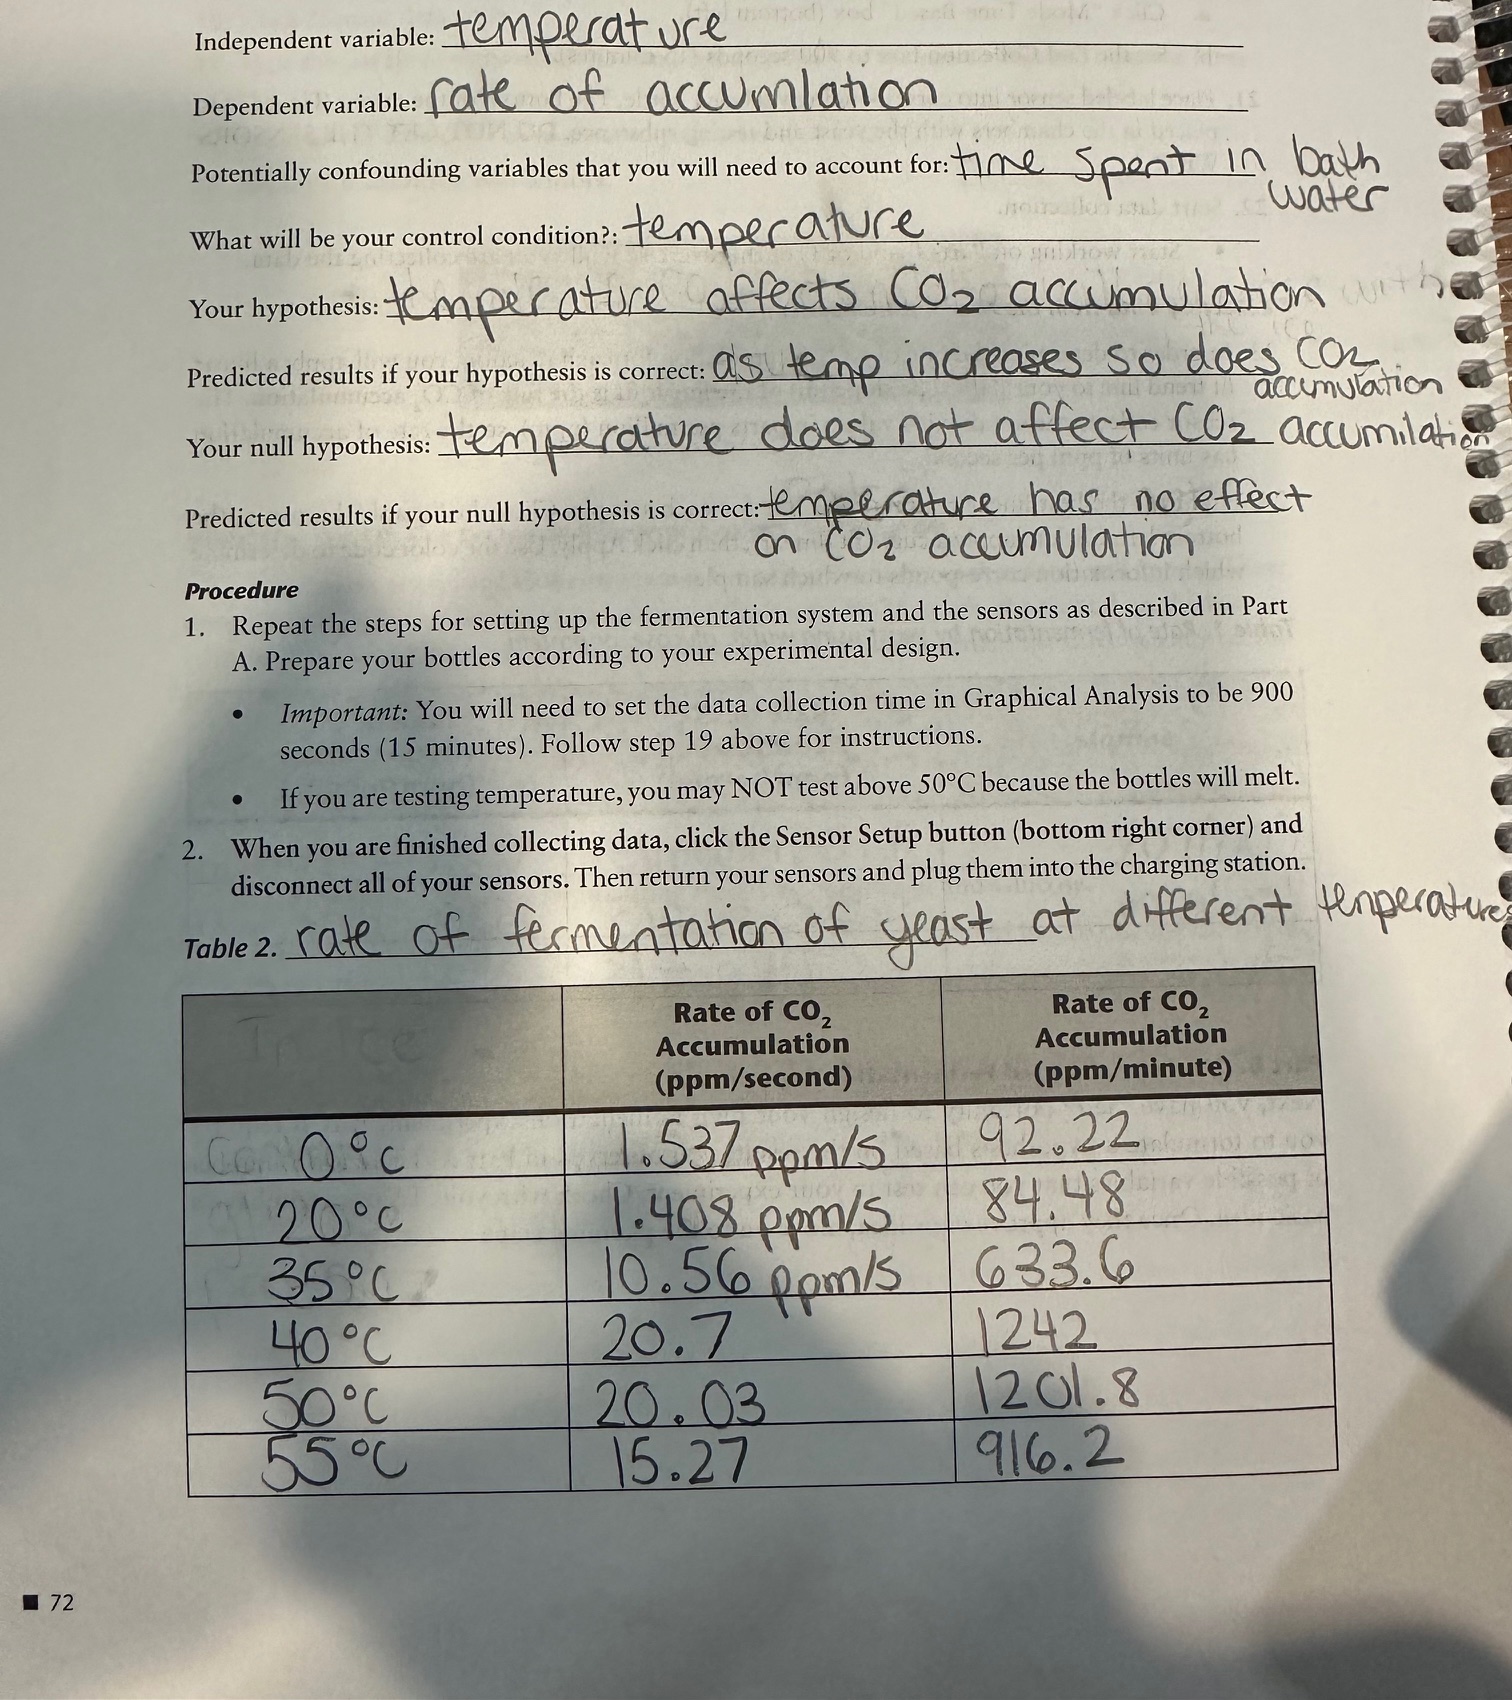 Independent variable: temperature
Dependent variable: rate of accumlation
Potentially confounding variables that you will need to account for: time spent in bath
water
What will be your control condition?: temperature
Your hypothesis: temperature affects CO2 accumulation with
Predicted results if your hypothesis is correct: as temp increases so does CO2
accumulation
Your null hypothesis: temperature does not affect CO2 accumilation
Predicted results if your null hypothesis is correct: temperature has no effect
on CO2 accumulation
Procedure
1. Repeat the steps for setting up the fermentation system and the sensors as described in Part
A. Prepare your bottles according to your experimental design.
• Important: You will need to set the data collection time in Graphical Analysis to be 900
seconds (15 minutes). Follow step 19 above for instructions.
• If you are testing temperature, you may NOT test above 50°C because the bottles will melt.
2. When you are finished collecting data, click the Sensor Setup button (bottom right corner) and
disconnect all of your sensors. Then return your sensors and plug them into the charging station.
Table 2. rate of fermentation of yeast at different temperatures
Rate of CO2 Accumulation (ppm/second) Rate of CO2 Accumulation (ppm/minute)
0°C 1.537 ppm/s 92.22
20°C 1.408 ppm/s 84.48
35°C 10.56 ppm/s 633.6
40°C 20.7 1242
50°C 20.03 1201.8
55°C 15.27 916.2
72